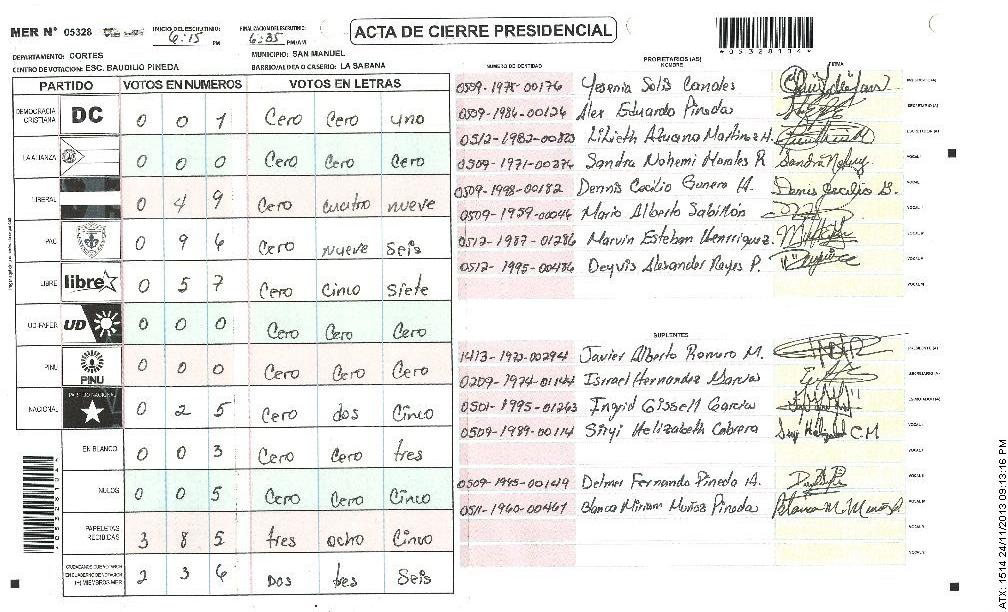 MER N° 05328
INICIO DEL ESCRUTINIO: 6:15 PM
FINALIZACION DEL ESCRUTINIO: 6:35 PM/AM
ACTA DE CIERRE PRESIDENCIAL
05328134
DEPARTAMENTO: CORTES
MUNICIPIO: SAN MANUEL
CENTRO DE VOTACION: ESC. BAUDILIO PINEDA
BARRIO/ALDEA O CASERIO: LA SABANA
PARTIDO VOTOS EN NUMEROS VOTOS EN LETRAS
DEMOCRACIA CRISTIANA DC 0 0 1 Cero Cero uno
LA ALIANZA 0 0 0 Cero Cero Cero
LIBERAL 0 4 9 Cero cuatro nueve
PAC 0 9 6 Cero nueve Seis
LIBRE libre 0 5 7 Cero Cinco Siete
UD-FAPER UD 0 0 0 Cero Cero Cero
PINU PINU 0 0 0 Cero Cero Cero
NACIONAL PARTIDO NACIONAL 0 2 5 Cero dos Cinco
EN BLANCO 0 0 3 Cero Cero tres
NULOS 0 0 5 Cero Cero Cinco
PAPELETAS RECIBIDAS 3 8 5 tres ocho Cinco
CIUDADANOS QUE VOTARON EN CUADERNO DE VOTACION (+) MIEMBROS MER 2 3 6 Dos tres Seis
NUMERO DE IDENTIDAD
PROPIETARIOS (AS)
NOMBRE
FIRMA
0509-1975-00176 Yesenia Solis Canales
0509-1986-00126 Alex Eduardo Pineda
0512-1982-00823 Lilieth Azucena Martinez H.
0509-1971-00274 Sandra Nohemi Morales R
0509-1998-00182 Dennis Cecilio Gunera M.
0509-1959-00046 Mario Alberto Sabillón
0512-1987-01286 Marvin Esteban Henrriquez.
0512-1995-00486 Deyvis Alexander Reyes P.
SUPLENTES
1413-1970-00294 Javier Alberto Romero M.
0209-1974-01144 Ismael Hernandez Marcias
0501-1995-01263 Ingrid Gissell Garcia
0509-1989-00114 Siryi Helizabeth Cabrera
0509-1945-00149 Delmer Fernando Pineda A.
0511-1960-00467 Blanca Miriam Muñoz Pineda
ATX: 1514 24/11/2013 09:13:16 PM